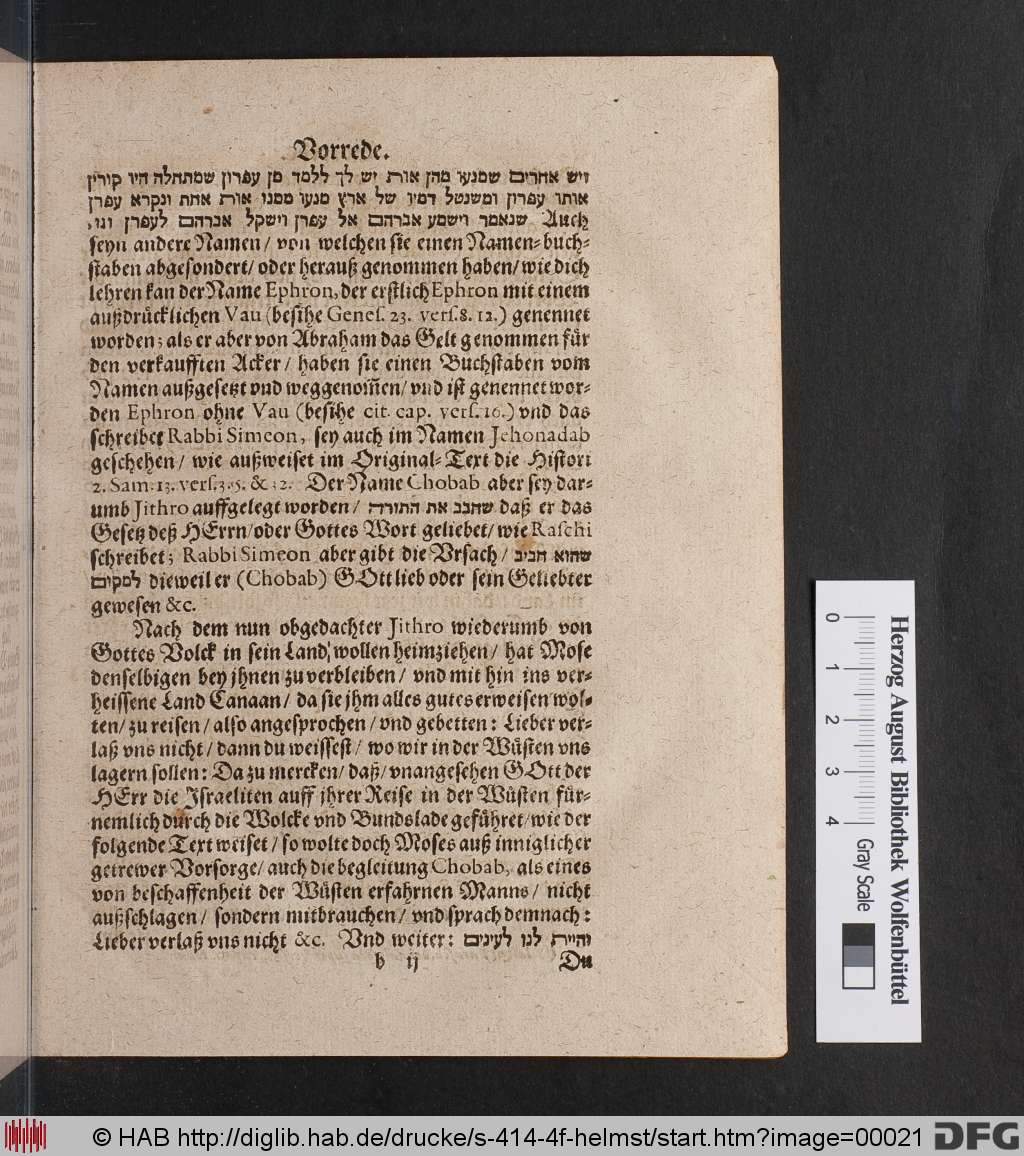 Vorrede.
ויש אחרים שמנעו מהן אות יש לך ללמד מן עפרון שמתחלה היו קורין
אותו עפרון ומשנטל דמיו של ארץ מנעו ממנו אות אחת ונקרא עפרן
שנאמר וישמע אברהם אל עפרן וישקל אברהם לעפרן וגו, Auch
seyn andere Namen / von welchen sie einen Namen-buch-
staben abgesondert/ oder herauß genommen haben/ wie dich
lehren kan der Name Ephron, der erstlich Ephron mit einem
außdrücklichen Vau (besihe Genes. 23. vers. 8. 12.) genennet
worden; als er aber von Abraham das Gelt genommen für
den verkaufften Acker / haben sie einen Buchstaben vom
Namen außgesetzt vnd weggenom̃en/ vnd ist genennet wor-
den Ephron ohne Vau (besihe cit. cap. vers. 16.) vnd das
schreibet Rabbi Simeon, sey auch im Namen Jehonadab
geschehen / wie außweiset im Original-Text die Histori
2. Sam. 13. vers. 3. 5. & 32. Der Name Chobab aber sey dar-
umb Jithro auffgelegt worden / שחבב את התורה daß er das
Gesetz deß HErrn/ oder Gottes Wort geliebet/ wie Raschi
schreibet; Rabbi Simeon aber gibt die Vrsach / שהוא חביב
למקום dieweil er (Chobab) GOtt lieb oder sein Geliebter
gewesen &c.
Nach dem nun obgedachter Jithro wiederumb von
Gottes Volck in sein Land wollen heimziehen / hat Mose
denselbigen bey jhnen zu verbleiben / vnd mit hin ins ver-
heissene Land Canaan / da sie jhm alles gutes erweisen wol-
ten/ zu reisen / also angesprochen / vnd gebetten: Lieber ver-
laß vns nicht / dann du weissest / wo wir in der Wüsten vns
lagern sollen: Da zu mercken/ daß/ vnangesehen GOtt der
HErr die Israeliten auff jhrer Reise in der Wüsten für-
nemlich durch die Wolcke vnd Bundslade geführet/ wie der
folgende Text weiset / so wolte doch Moses auß inniglicher
getrewer Vorsorge/ auch die begleitung Chobab, als eines
von beschaffenheit der Wüsten erfahrnen Manns / nicht
außschlagen / sondern mitbrauchen / vnd sprach demnach:
Lieber verlaß vns nicht &c. Vnd weiter: והיית לנו לעינים
b ij Du
Herzog August Bibliothek Wolfenbüttel
0 1 2 3 4
Gray Scale
© HAB http://diglib.hab.de/drucke/s-414-4f-helmst/start.htm?image=00021
DFG